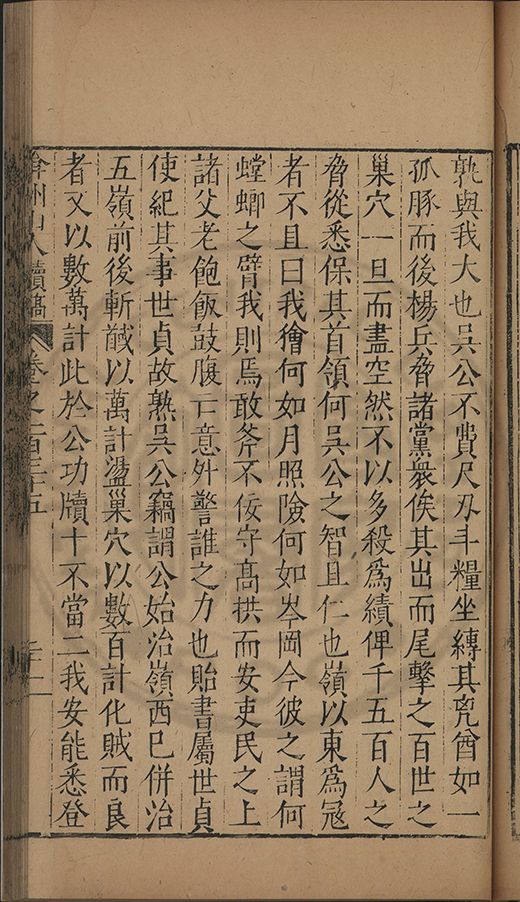 孰與我大也吳公不費尺刃斗糧坐縛其兇酋如一
孤豚而後楊兵脅諸黨衆俟其出而尾擊之百世之
巢穴一旦而盡空然不以多殺爲績俾千五百人之
脅從悉保其首領何吳公之智且仁也嶺以東爲冦
者不且曰我獪何如月照險何如岑岡今彼之謂何
螳螂之臂我則焉敢斧不佞守髙拱而安吏民之上
諸父老飽飯鼓腹亡意外警誰之力也貽書屬世貞
使紀其事世貞故熟吳公竊謂公始治嶺西巳併治
五嶺前後斬馘以萬計盪巢穴以數百計化賊而良
者又以數萬計此於公功牘十不當二我安能悉登
弇州山人續稿 卷之一百三十五 二十二